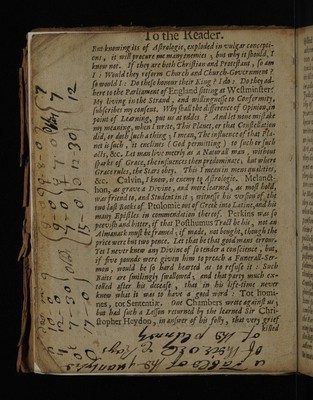 To the Reader.
But knowing its of Astrologie, exploded in vulgar concepti-
ons, it will procure me many enemies; but why it should, I
know not. If they are both Christian and Protestant, so am
I: Would they reform Church and Church-Government?
so would I: Do these honour their King? I do: Do they ad-
here to the Parliament of England sitting at Westminster?
My living in the Strand, and willingness to Conformity,
subscribes my consent. Why shall the difference of Opinion, in
point of Learning, put us at oddes? And let none mistake
my meaning, when I write, This Planet, or that Constellation
did, or doth such a thing; I mean, The influence of that Pla-
net is such, it enclines (God permitting) to such or such
acts, &c. Let man live meerly as a Natural man, without
sparks of Grace, the influences then predominate; but where
Grace rules, the Stars obey. This I mean in mens qualities,
&c. Calvin, I know, is enemy to Astrologie. Melanct-
hon, as grave a Divine, and more learned, as most hold,
was friend to, and Student in it; witness his version of the
two last Books of Ptolomie out of Greek into Latine, and his
many Epistles in commendation thereof. Perkins was so
peevish and bitter, if that Posthumus Tract be his, not an
Almanack must be framed; if made, not bought, though the
price were but two pence. Let that be that good mans errour.
Yet I never knew any Divine of so tender a conscience, but,
if five pounds were given him to preach a Funeral-Ser-
mon, would be so hard hearted as to refuse it. Such
Baits are smilingly swallowed; and that party much ex-
tolled after his decease, that in his life-time never
knew what it was to have a good word: Tot homi-
nes, tot Sententiæ. One Chambers wrote against us;
but had such a Lesson returned by the learned Sir Chri-
stopher Heydon, in answer of his folly, that very grief
killed